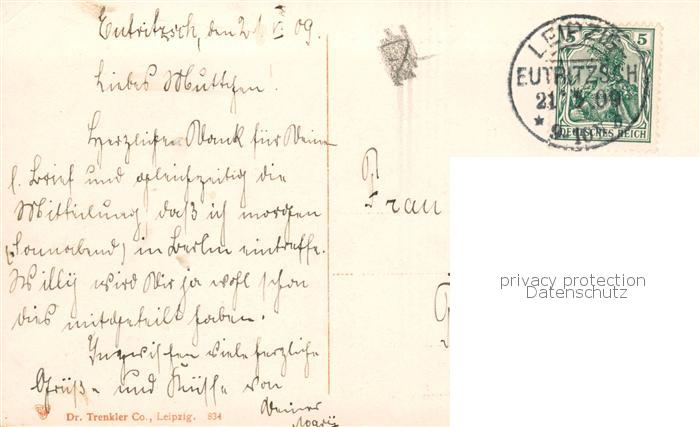 Eutritzsch, den 21. V. 09.
Liebes Muttchen!
Herzlichen Dank für Deinen
l. Brief und gleichzeitig die
Mitteilung, daß ich morgen
(Sonnabend) in Berlin eintreffe.
Willy wird Dir ja wohl schon
dies mitgeteilt haben.
Inzwischen viele herzliche
Grüße und Küsse von
Deiner
Dr. Trenkler Co., Leipzig. 834
Frau
LEIPZIG
EUTRITZSCH
21 5 09
5 5
DEUTSCHES REICH
privacy protection
Datenschutz